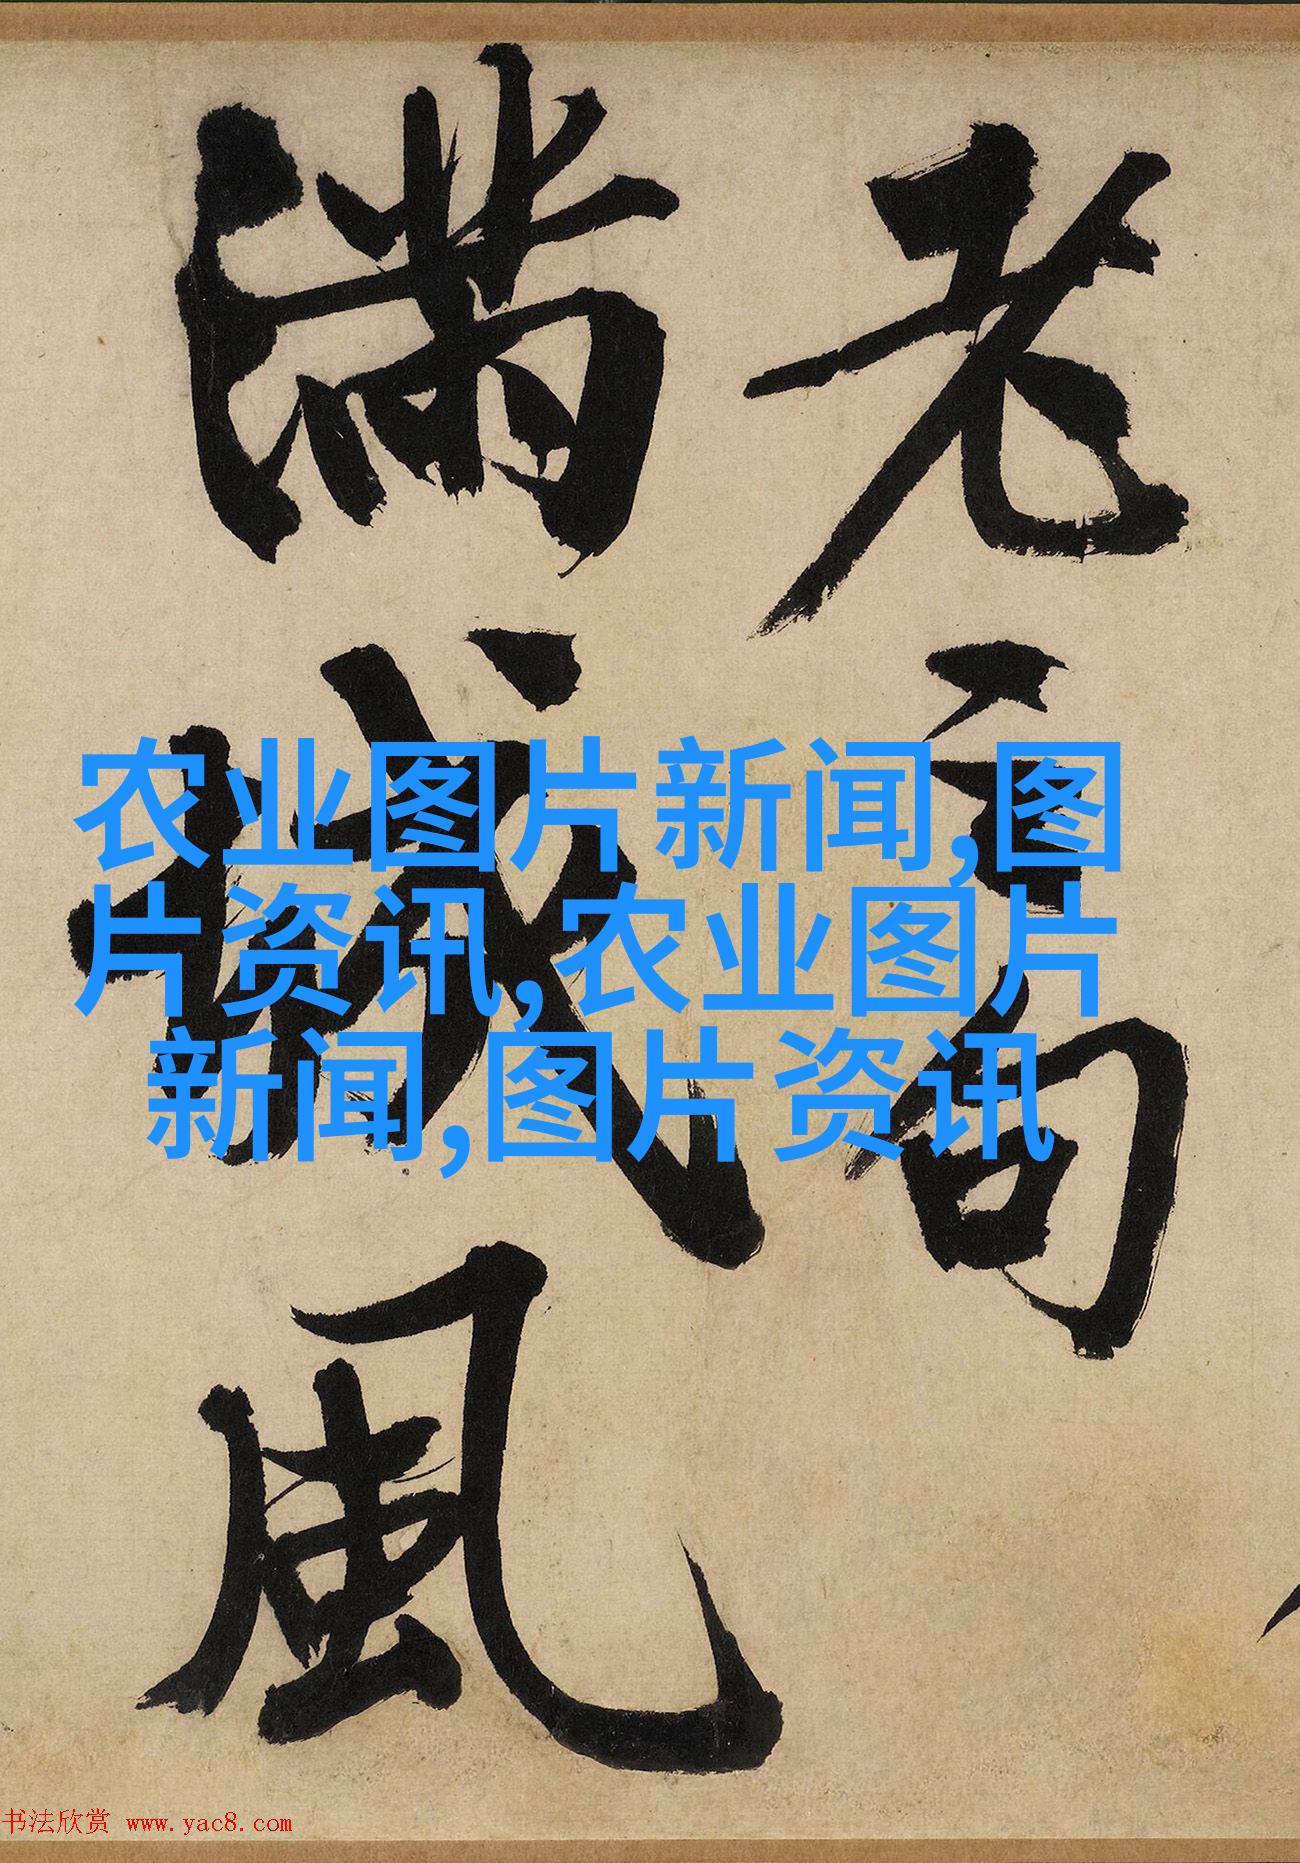 老句
滿城風
农业图片新闻,图
片资讯,农业图片
新闻,图片资讯
书法欣赏 www.yac8.com